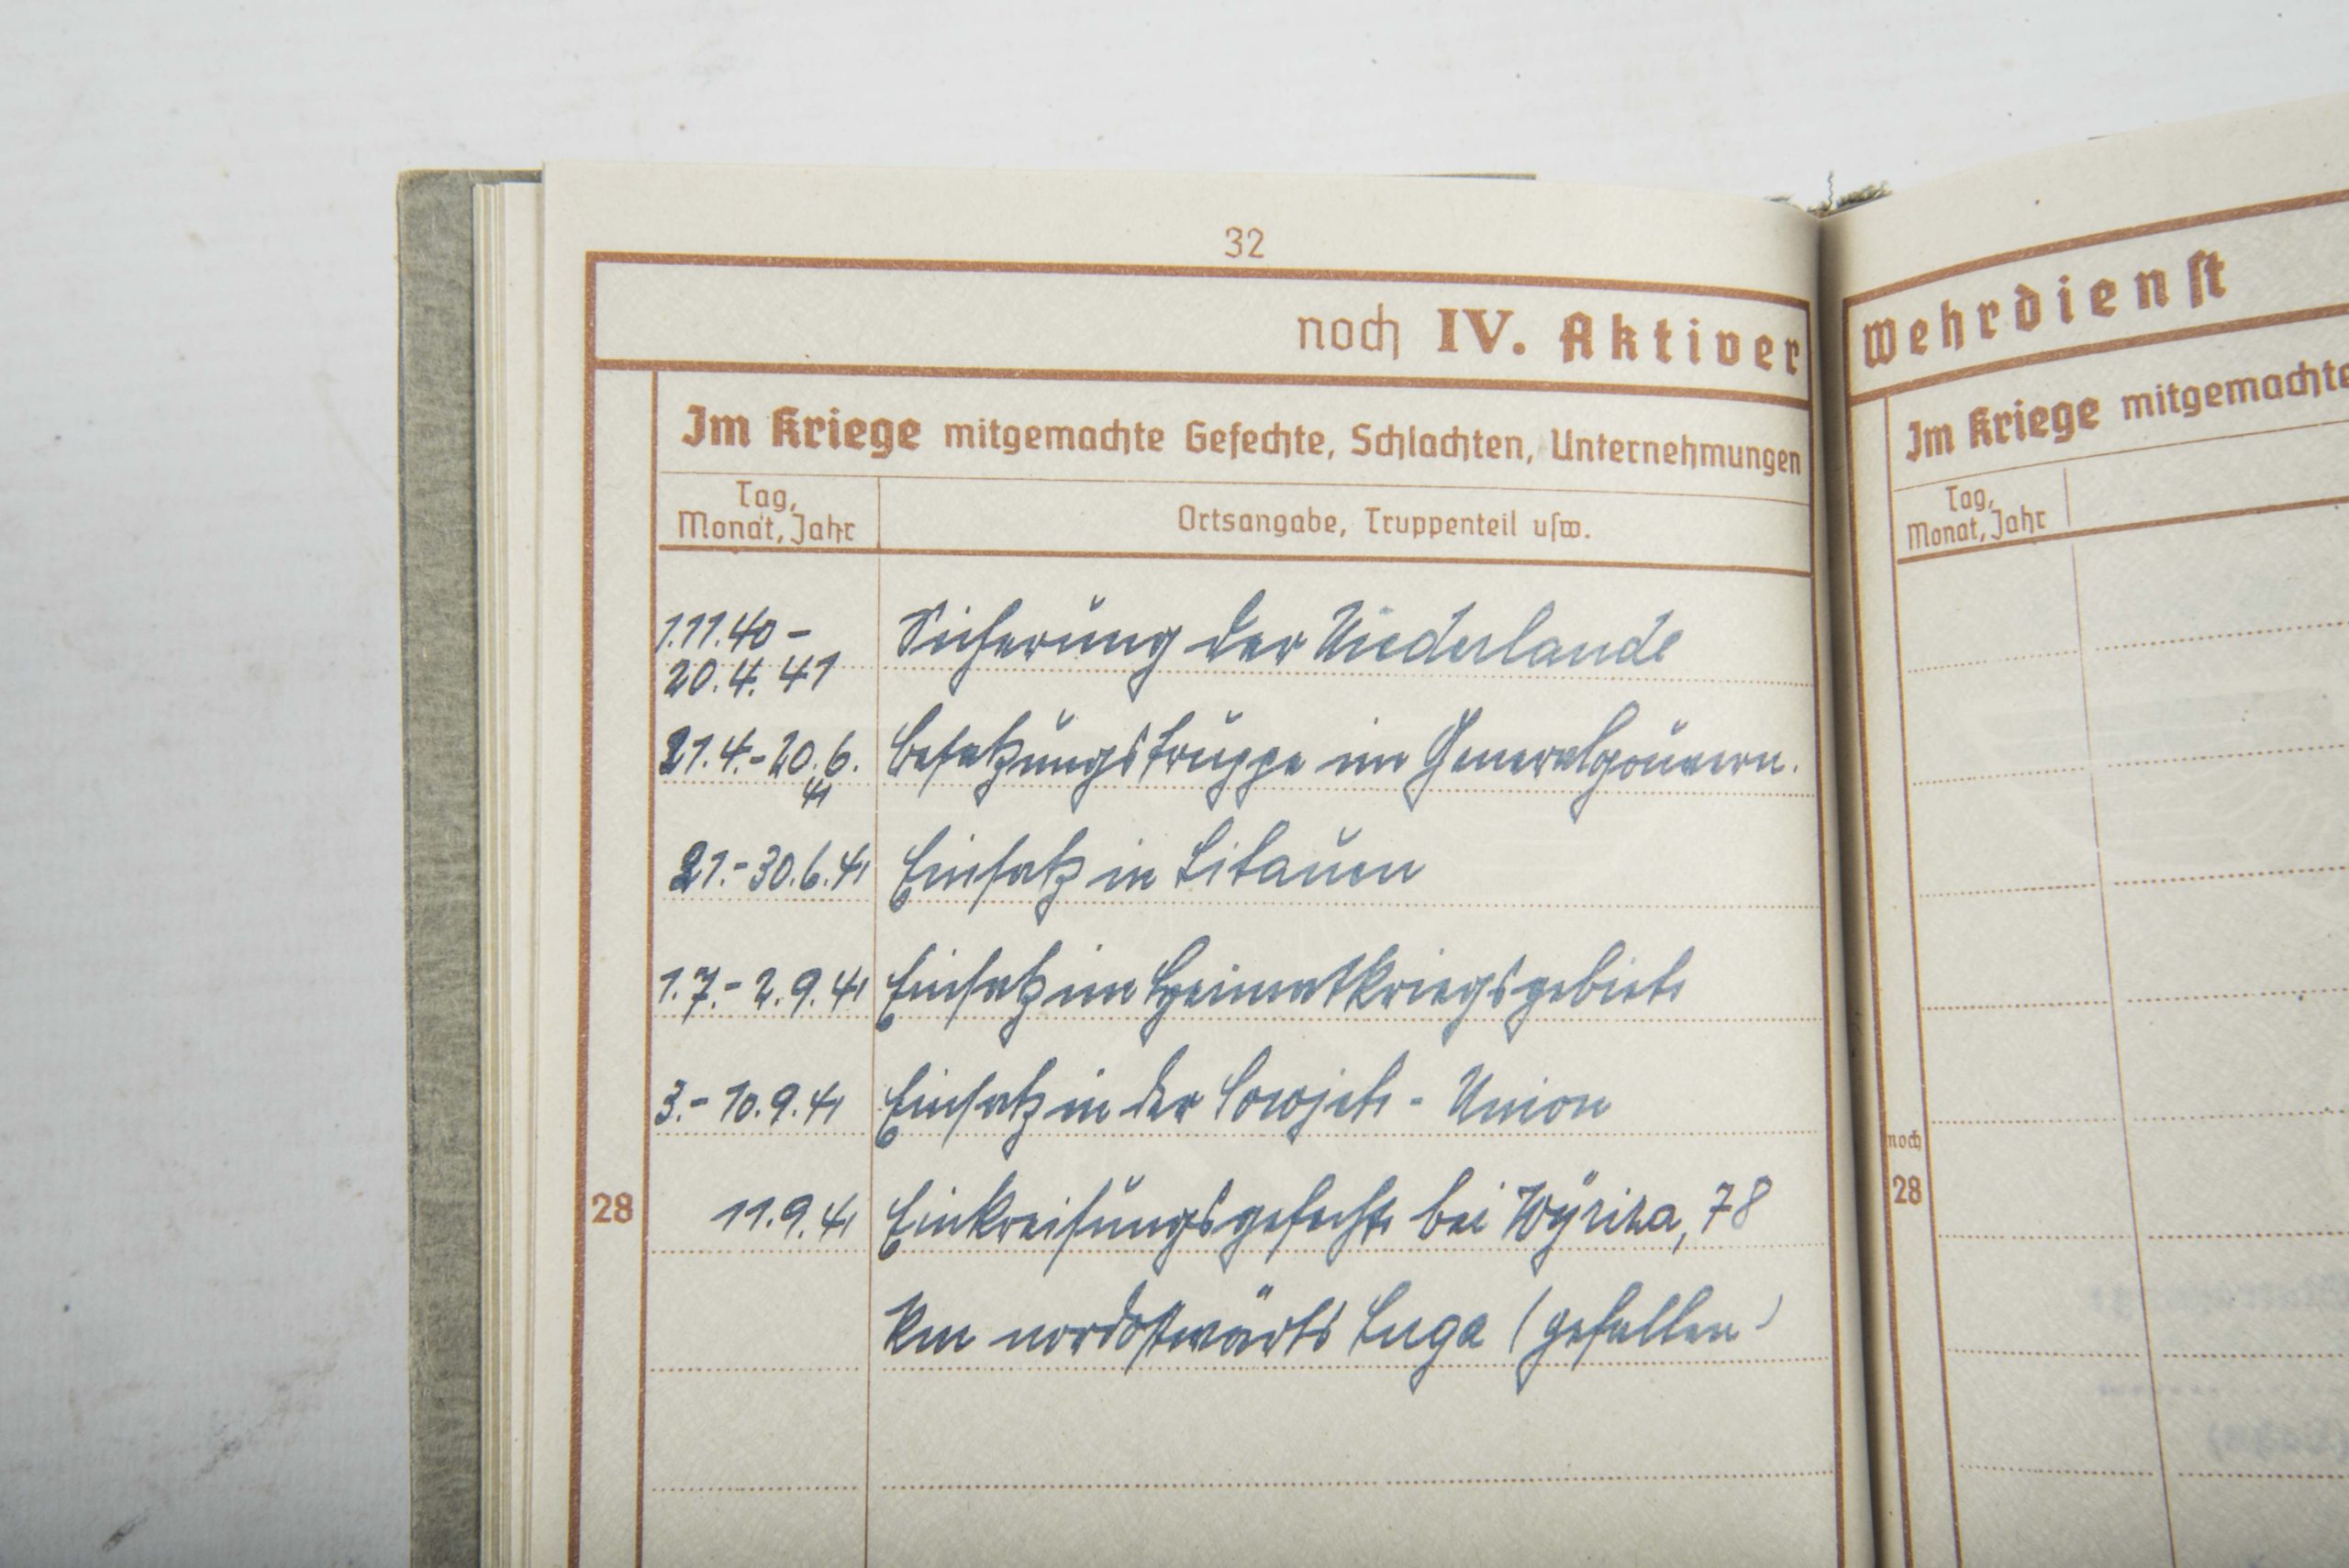 32
noch IV. Aktiver
Im Kriege mitgemachte Gefechte, Schlachten, Unternehmungen
Tag,
Monat, Jahr
Ortsangabe, Truppenteil usw.
1.11.40 -
20.4.41
Sicherung der Niederlande
21.4.-20.6.
41
Besatzungstruppe im Generalgouvern.
21.-30.6.41 Einsatz in Litauen
1.7.-2.9.41 Einsatz im Heimatkriegsgebiet
3.-10.9.41 Einsatz in der Sowjet-Union
28
11.9.41 Einkreisungsgefecht bei Wyriza, 78
km nordostwärts Luga (gefallen)
Wehrdienst
Im Kriege mitgemachte
Tag,
Monat, Jahr
noch
28